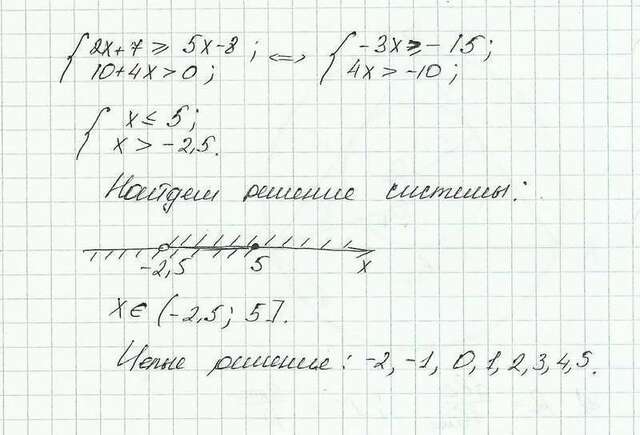 { 2x+7 ≥ 5x-8 ; ⇔ { -3x ≥ -15;
10+4x > 0 ; 4x > -10 ;
{ x ≤ 5 ;
x > -2,5.
Найдем решение системы:
-2,5 5 x
x ∈ (-2,5; 5].
Целые решения: -2, -1, 0, 1, 2, 3, 4, 5.